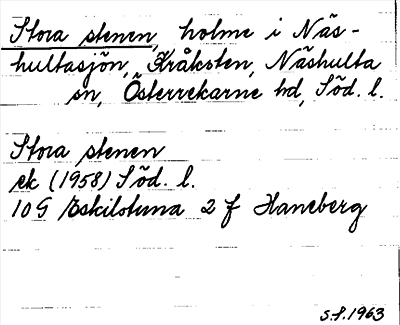 Stora stenen, holme i Näs-
hultasjön, Kråksten, Näshulta
sn, Österrekarne hd, Söd. l.
Stora stenen
ek (1958) Söd. l.
10G Eskilstuna 2 f Haneberg
S.f. 1963